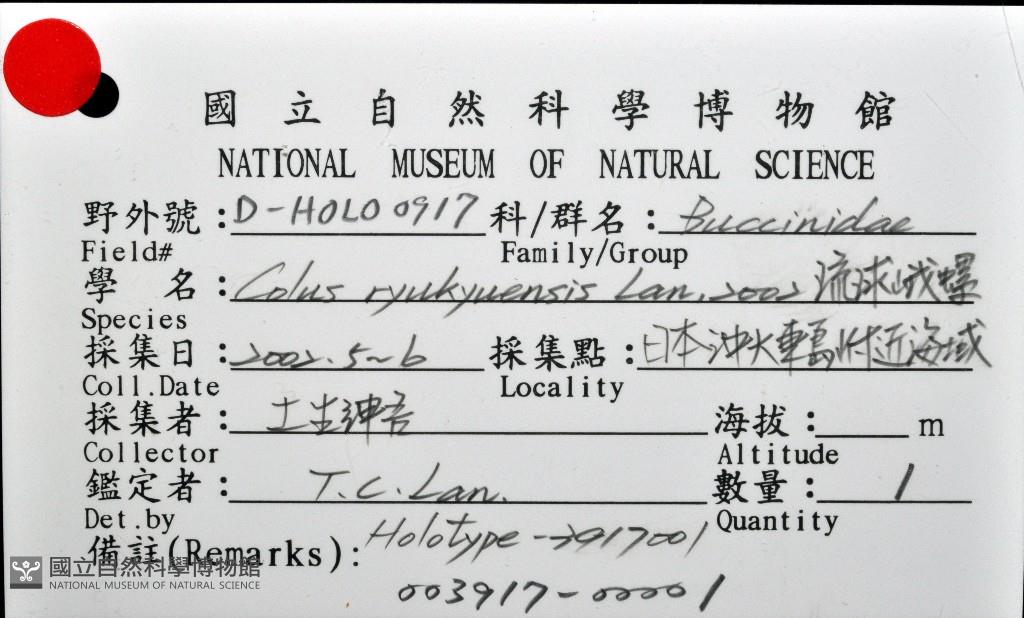 國立自然科學博物館
NATIONAL MUSEUM OF NATURAL SCIENCE
野外號：D-HOLO 0917 科/群名：Buccinidae
Field# Family/Group
學 名：Colus ryukyuensis Lan, 2002 流球峨螺
Species
採集日：2002.5~6 採集點：日本沖火轟附近海域
Coll.Date Locality
採集者：土生紳吾 海拔：m
Collector Altitude
鑑定者：T.C.Lan. 數量：1
Det.by Quantity
備註(Remarks)：Holotype-2917001
003917-00001
國立自然科學博物館
NATIONAL MUSEUM OF NATURAL SCIENCE